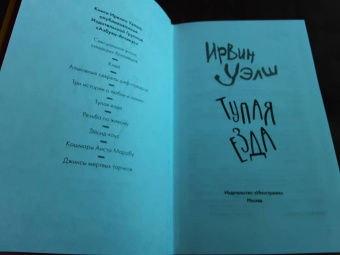 Книги Ирвина Уэлша,
опубликованные
Издательской Группой
«Азбука-Аттикус»
Клей
Альковные секреты шеф-поваров
Три истории о любви и химии
Тупая езда
Резьба по живому
Эйсид-хаус
Кошмары Аиста Марабу
Джинсы мертвых торчков
ИРВИН
УЭЛШ
ТУПАЯ
ЕЗДА
Издательство «Иностранка»
Москва